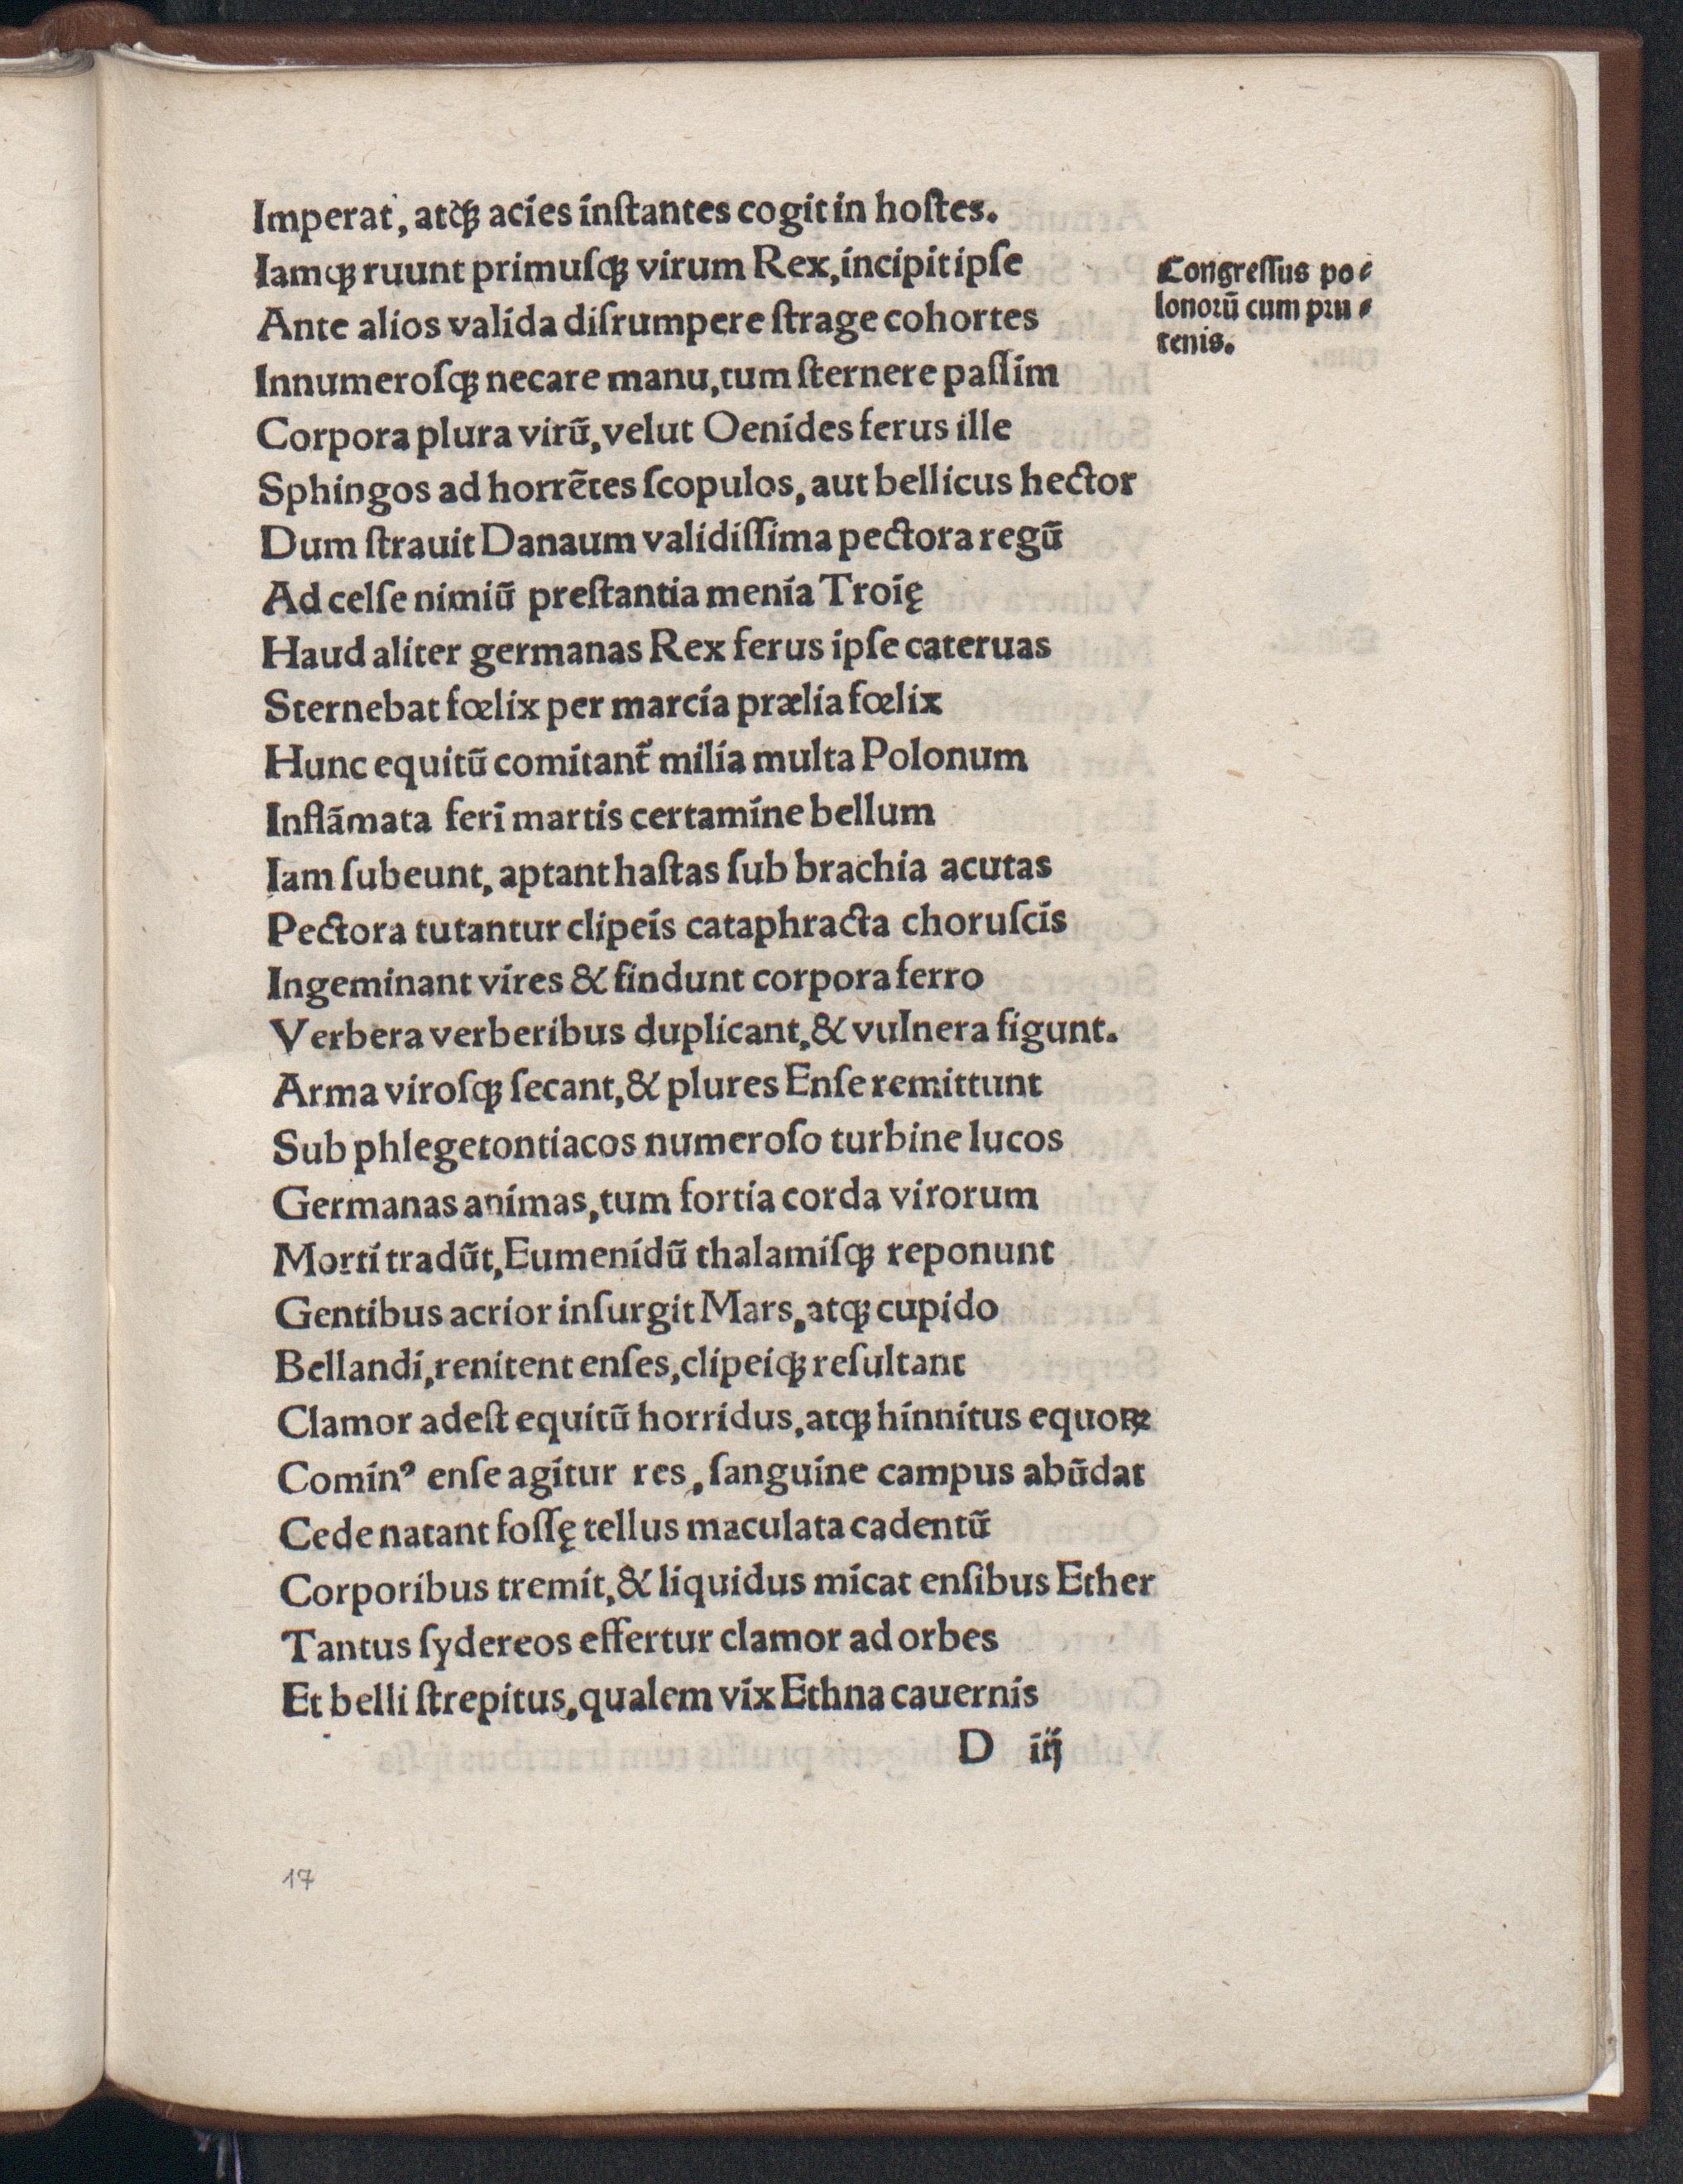 Imperat, atqꝫ acies inſtantes cogit in hoſtes.
Iamqꝫ ruunt primuſqꝫ virum Rex, incipit ipſe
Ante alios valida diſrumpere ſtrage cohortes
Innumeroſqꝫ necare manu, tum ſternere paſſim
Corpora plura virũ, velut Oenides ferus ille
Sphingos ad horrẽtes ſcopulos, aut bellicus hector
Dum ſtrauit Danaum validiſſima pectora regũ
Ad celſe nimiũ preſtantia menia Troię
Haud aliter germanas Rex ferus ipſe cateruas
Sternebat fœlix per marcia prælia fœlix
Hunc equitũ comitant᷑ milia multa Polonum
Inflãmata feri martis certamine bellum
Iam ſubeunt, aptant haſtas ſub brachia acutas
Pectora tutantur clipeis cataphracta choruſcis
Ingeminant vires & findunt corpora ferro
Verbera verberibus duplicant, & vulnera figunt.
Arma viroſqꝫ ſecant, & plures Enſe remittunt
Sub phlegetontiacos numeroſo turbine lucos
Germanas animas, tum fortia corda virorum
Morti tradũt, Eumenidũ thalamiſqꝫ reponunt
Gentibus acrior inſurgit Mars, atqꝫ cupido
Bellandi, renitent enſes, clipeiqꝫ reſultant
Clamor adeſt equitũ horridus, atqꝫ hinnitus equoꝝ
Cominꝰ enſe agitur res, ſanguine campus abũdat
Cede natant foſſę tellus maculata cadentũ
Corporibus tremit, & liquidus micat enſibus Ether
Tantus ſydereos effertur clamor ad orbes
Et belli ſtrepitus, qualem vix Ethna cauernis
D iij
Congreſſus po⸗
lonorũ cum pru⸗
tenis.
17